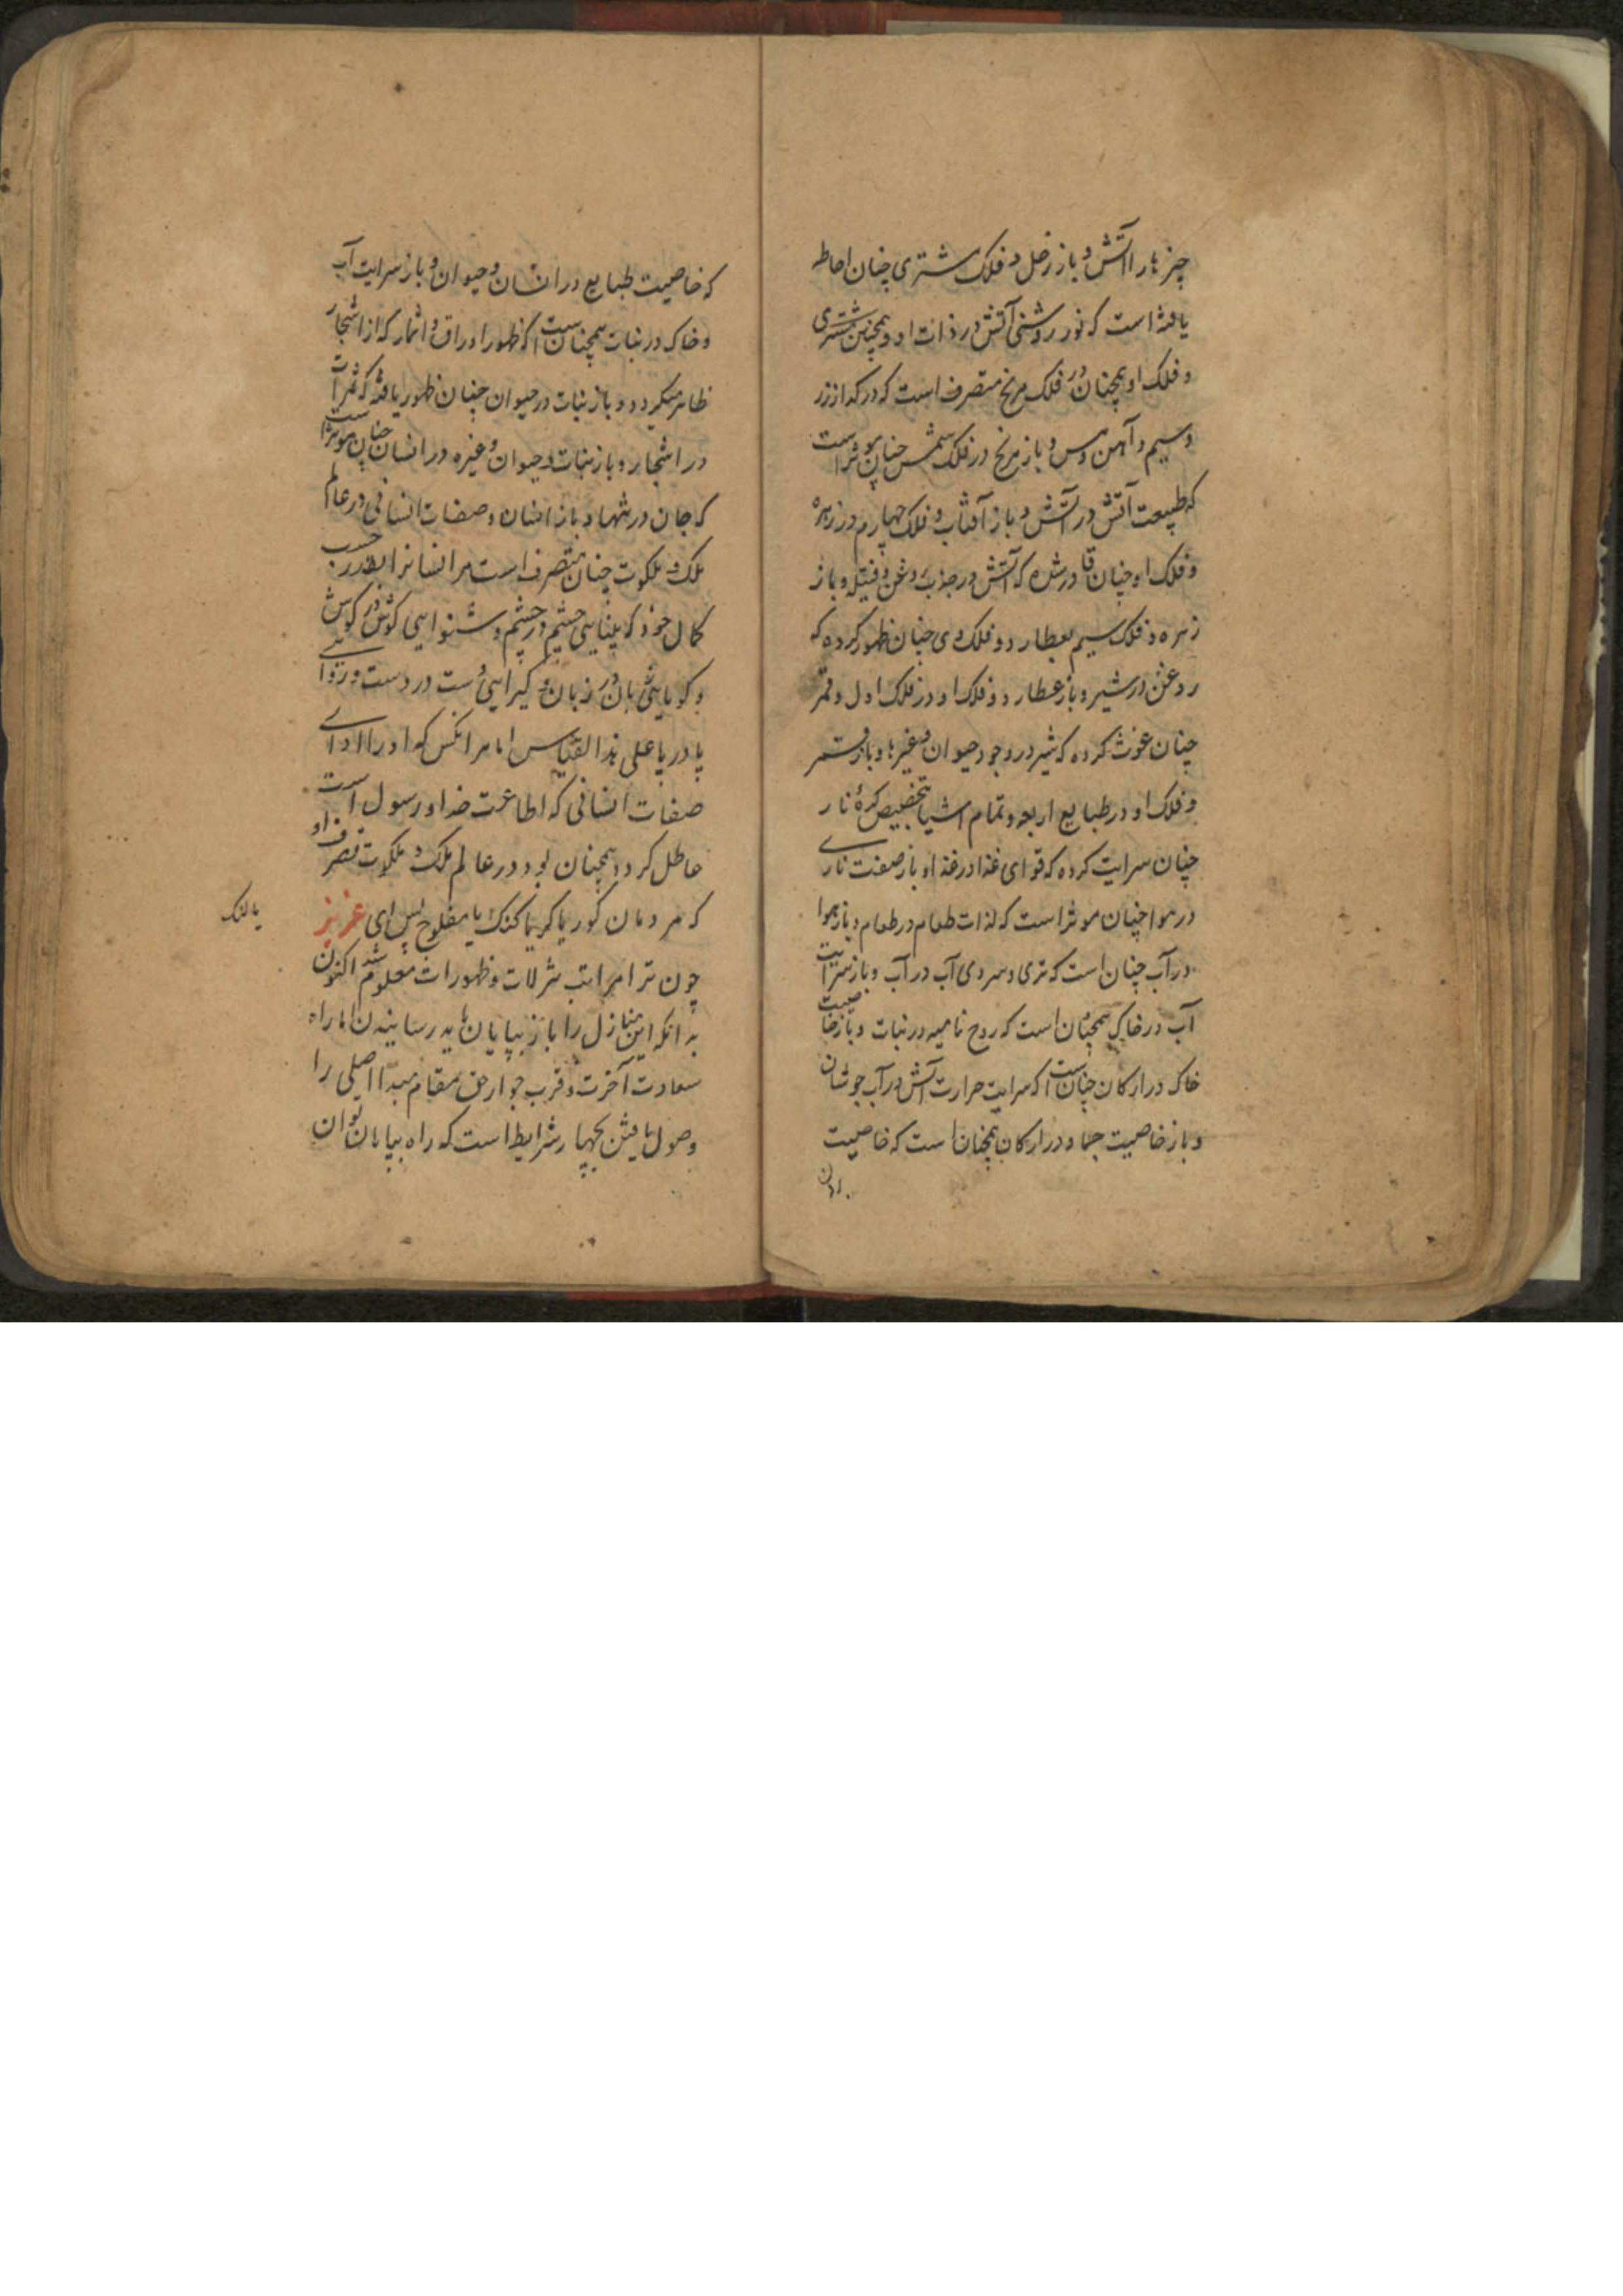 چیزها را آتش و باز زحل و فلک مشتری چنان احاطه
یافته است که نور روشنی آتش در ذات او و همچنین مشتری
و فلک او همچنان در فلک مریخ متصرف است که در گداز زر
و سیم و آهن و مس و باز مریخ در فلک شمس چنان موثر است
که طبیعت آتش در آتش و باز آفتاب و فلک چهارم در زهره
و فلک او چنان قادر شده که آتش در جذب روغن و فتیله و باز
زهره و فلک سیم بعطارد و فلک وی چنان ظهور کرده که
روغن در شیر و باز عطارد و فلک او در فلک اول و قمر
چنان غوث کرده که شیر در وجود حیوان و غیرها و باز قمر
و فلک او در طبایع اربعه و تمام اشیا بتخصیص کرهٔ نار
چنان سرایت کرده که قوای غذا در غذا و باز صفت ناری
در هوا چنان موثر است که لذات طعام در طعام و باز هوا
در آب چنان است که تری و سردی آب در آب و باز سرایت
آب در خاک همچنان است که روح نامیه در نبات و باز خاصیت
خاک در ارکان چنانست که سرایت حرارت آتش در آب جوشان
و باز خاصیت جماد در ارکان همچنان است که خاصیت
که خاصیت طبایع در انسان و حیوان و باز سرایت آب
و خاک در نبات همچنانست که ظهور اوراق و اثمار که از اشجار
ظاهر میگردد و باز نبات در حیوان چنان ظهور یافته که ثمرات
در اشجار و باز نبات و حیوان و غیره در انسان چنان موثر است
که جان در تنها و باز انسان و صفات انسانی در عالم
ملک و ملکوت چنان متصرف است مر انسانرا حسب
کمال خود که بینایی چشم در چشم و شنوایی گوش در گوش
و گویایی زبان در زبان و گیرایی دست در دست و روایی
پا در پا علی هذا القیاس اما مر انکس که او را ادای
صفات انسانی که اطاعت خدا و رسول است
عاطل کردد همچنان بود در عالم ملک و ملکوت تصرف او
که مردمان کور یا کر یا کنک یا مفلوج پس ای عزیز
یا لنک
چون ترا مراتب تنزلات و ظهورات معلوم شد اکنون
بدانکه این منازل را باز بپایان باید رسانیدن اما راه
سعادت آخرت و قرب جوار حق مقام مبدا اصلی را
وصول یافتن بچهار شرایط است که راه بپایان توان